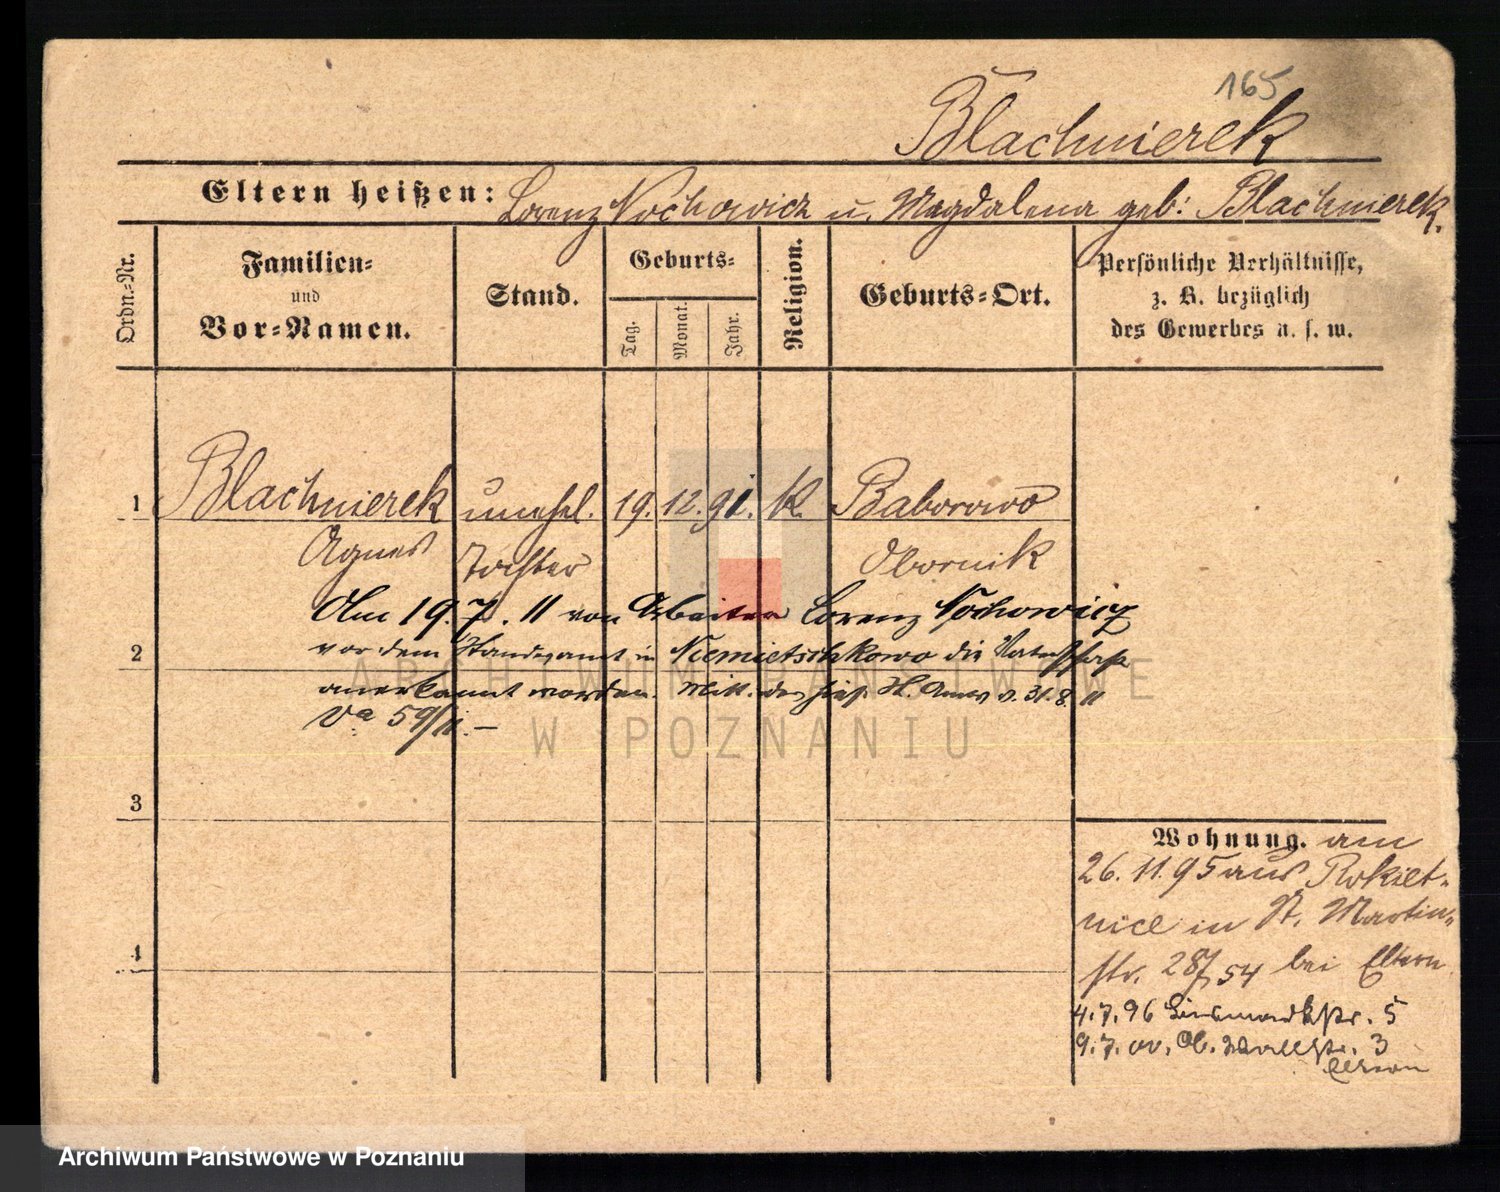 165
Blachnierek
Eltern heißen: Lorenz Nochowicz u. Magdalena geb: Blachnierek.
Ordn.-Nr.
Familien-
und
Vor-Namen.
Stand.
Geburts-
Tag.
Monat.
Jahr.
Religion.
Geburts-Ort.
Persönliche Verhältnisse,
z. B. bezüglich
des Gewerbes u. s. w.
1 Blachnierek unehel. 19. 12. 91. K. Baborowo
Agnes Tochter Obornik
Am 19. 7. 11 von Arbeiter Lorenz Nochowicz
2 vor dem Standesamt in Niemietschkowo die Vaterschaft
anerkannt worden. Mitt. des St. Amts v. 31. 8. 11
Va 59/11. —
3
4
Wohnung. am
26. 11. 95 aus Rokiet-
nice in St. Martin-
str. 28/54 bei Eltern
4. 7. 96 Bismarckstr. 5
9. 7. 00, Ob. Wallstr. 3
Eltern
ARCHIWUM PAŃSTWOWE
W POZNANIU
Archiwum Państwowe w Poznaniu